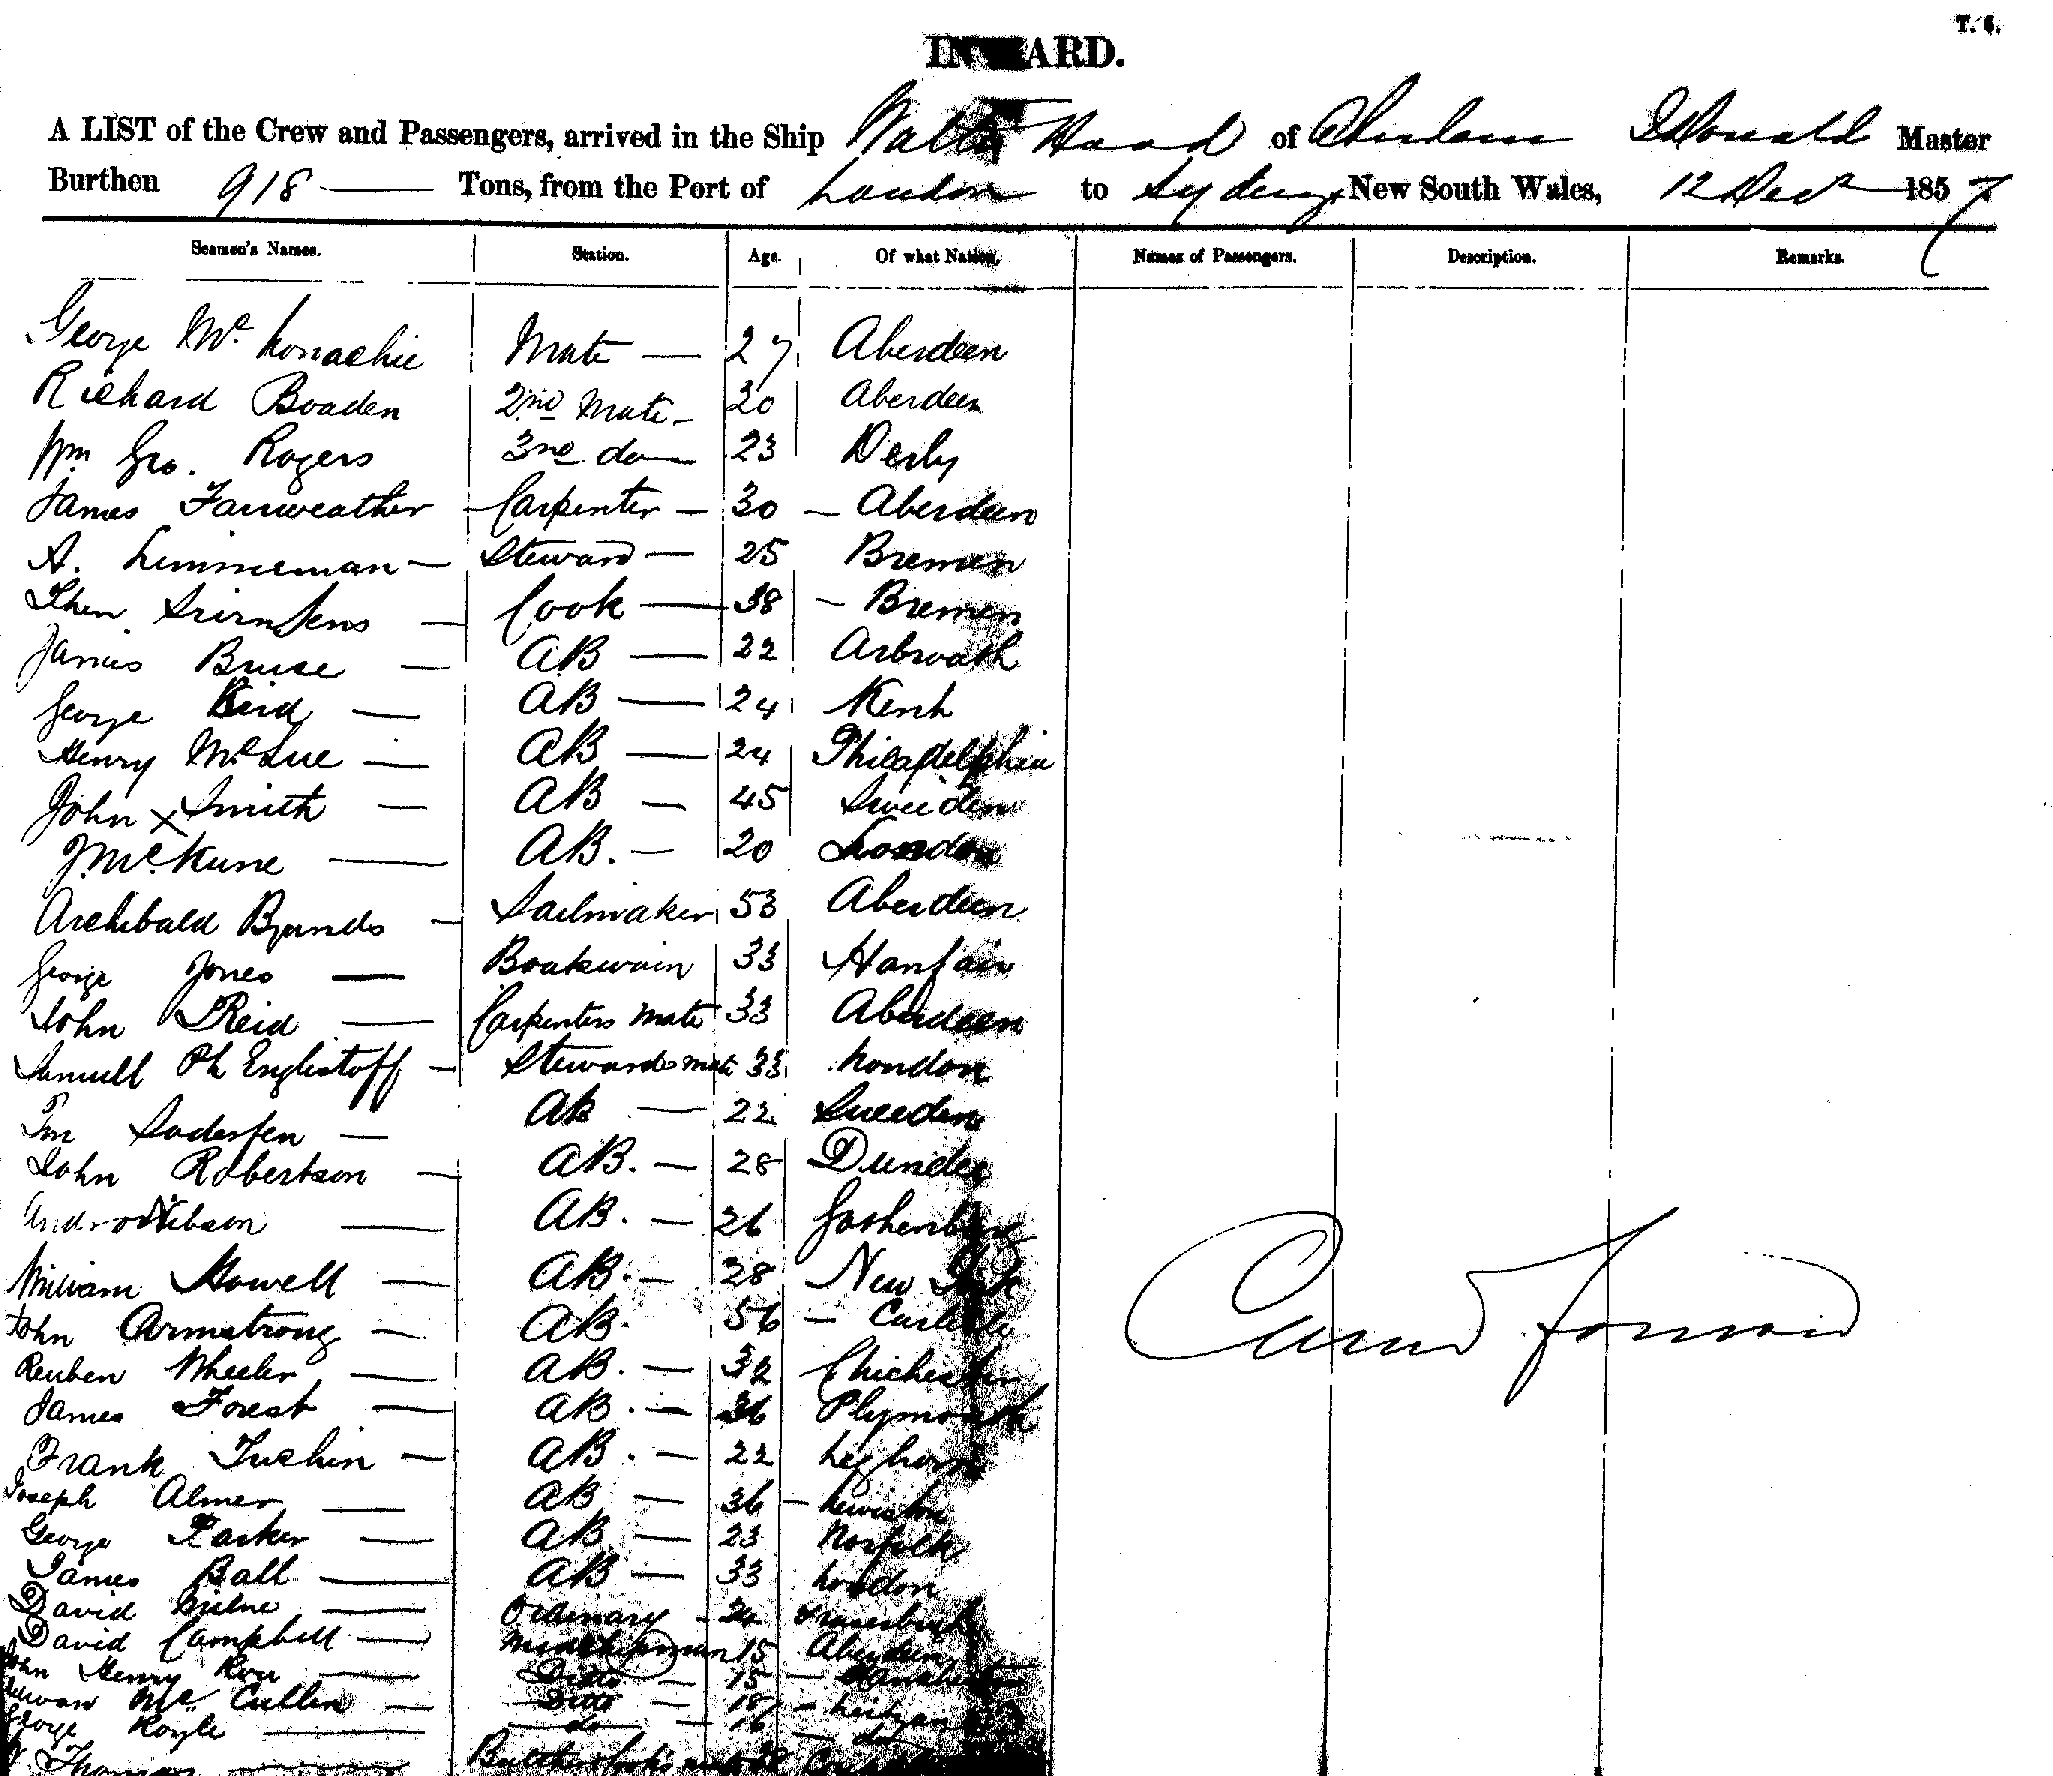 T. 6.
INWARD.
A LIST of the Crew and Passengers, arrived in the Ship Walter Hood of Aberdeen Donald Master
Burthen 918 — Tons, from the Port of London to Sydney New South Wales, 12 Decr 1857
Seamen's Names. Station. Age. Of what Nation. Names of Passengers. Description. Remarks.
George McConachie Mate — 27 Aberdeen
Richard Boaden 2nd Mate - 20 Aberdeen
Wm Geo. Rogers 3rd do — 23 Derby
James Fairweather Carpenter — 30 — Aberdeen
A. Limmeman — Steward — 25 Bremen
— Cook — 38 — Bremen
James Bruce — AB — 22 Arbroath
George Reid — AB — 24 Kent
Henry McLue — AB — 24 Philadelphia
John x Smith — AB — 45 Sweeden
J. McKune — AB. — 20 London
Archibald — Sailmaker 53 Aberdeen
George Jones — Boatswain 33
John Reid — Carpenters Mate 33 Aberdeen
Samuell Ph Englistoff — Stewards Mate 33 London
Soderfen — AB — 22 Sweeden
John Robertson — AB. — 28 Dundee
— AB. — 26
William Howell — AB. — 28 New York
John Armstrong — AB. 56 — Carlisle
Reuben Wheeler — AB. — 32 Chichester
James Forest — AB. — 36 Plymouth
Frank Tuchin — AB. — 22 Leghorn
Joseph Almer — AB — 36 —
George Parker — AB — 23 Norfolk
James Ball — AB — 33 London
David Milne — Ordinary - 24
David Campbell — Midshipman 15 Aberdeen
John Henry — Ditto — 15 —
McCullen — Ditto — 18 —
George — do — 16 — do
Thomas
Carried forward